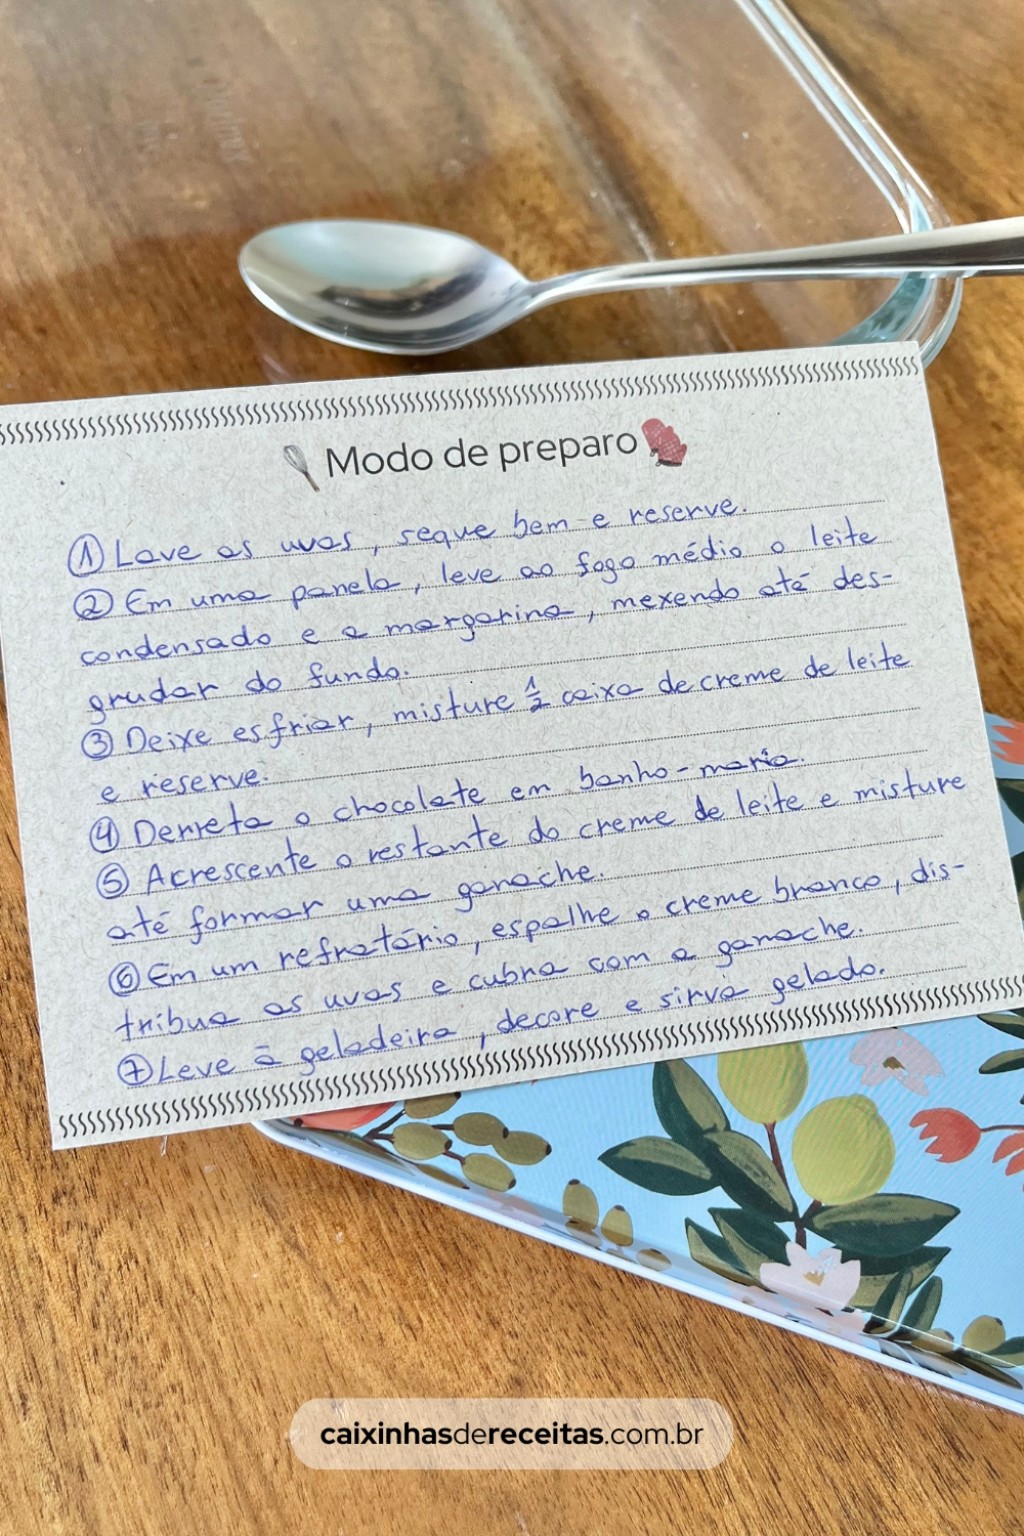 Modo de preparo
① Lave as uvas, seque bem e reserve.
② Em uma panela, leve ao fogo médio o leite
condensado e a margarina, mexendo até des-
grudar do fundo.
③ Deixe esfriar, misture 1/2 caixa de creme de leite
e reserve.
④ Derreta o chocolate em banho-maria.
⑤ Acrescente o restante do creme de leite e misture
até formar uma ganache.
⑥ Em um refratário, espalhe o creme branco, dis-
tribua as uvas e cubra com a ganache.
⑦ Leve à geladeira, decore e sirva gelado.
caixinhasdereceitas.com.br